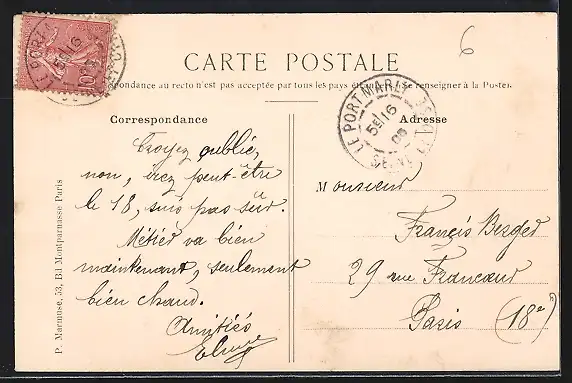 6
CARTE POSTALE
Correspondance au recto n'est pas acceptée par tous les pays étrangers (Se renseigner à la Poste).
LE PORT MARLY
5E/16
SEINE ET OISE
Correspondance
Adresse
Croyez oublié,
non, irez peut-être
le 18, suis pas sûr.
Métier va bien
maintenant, seulement
bien chaud.
Amitiés
Monsieur
Francis Berger
29 rue Francœur
Paris (18e)
P. Marmuse, 53, Bd Montparnasse Paris